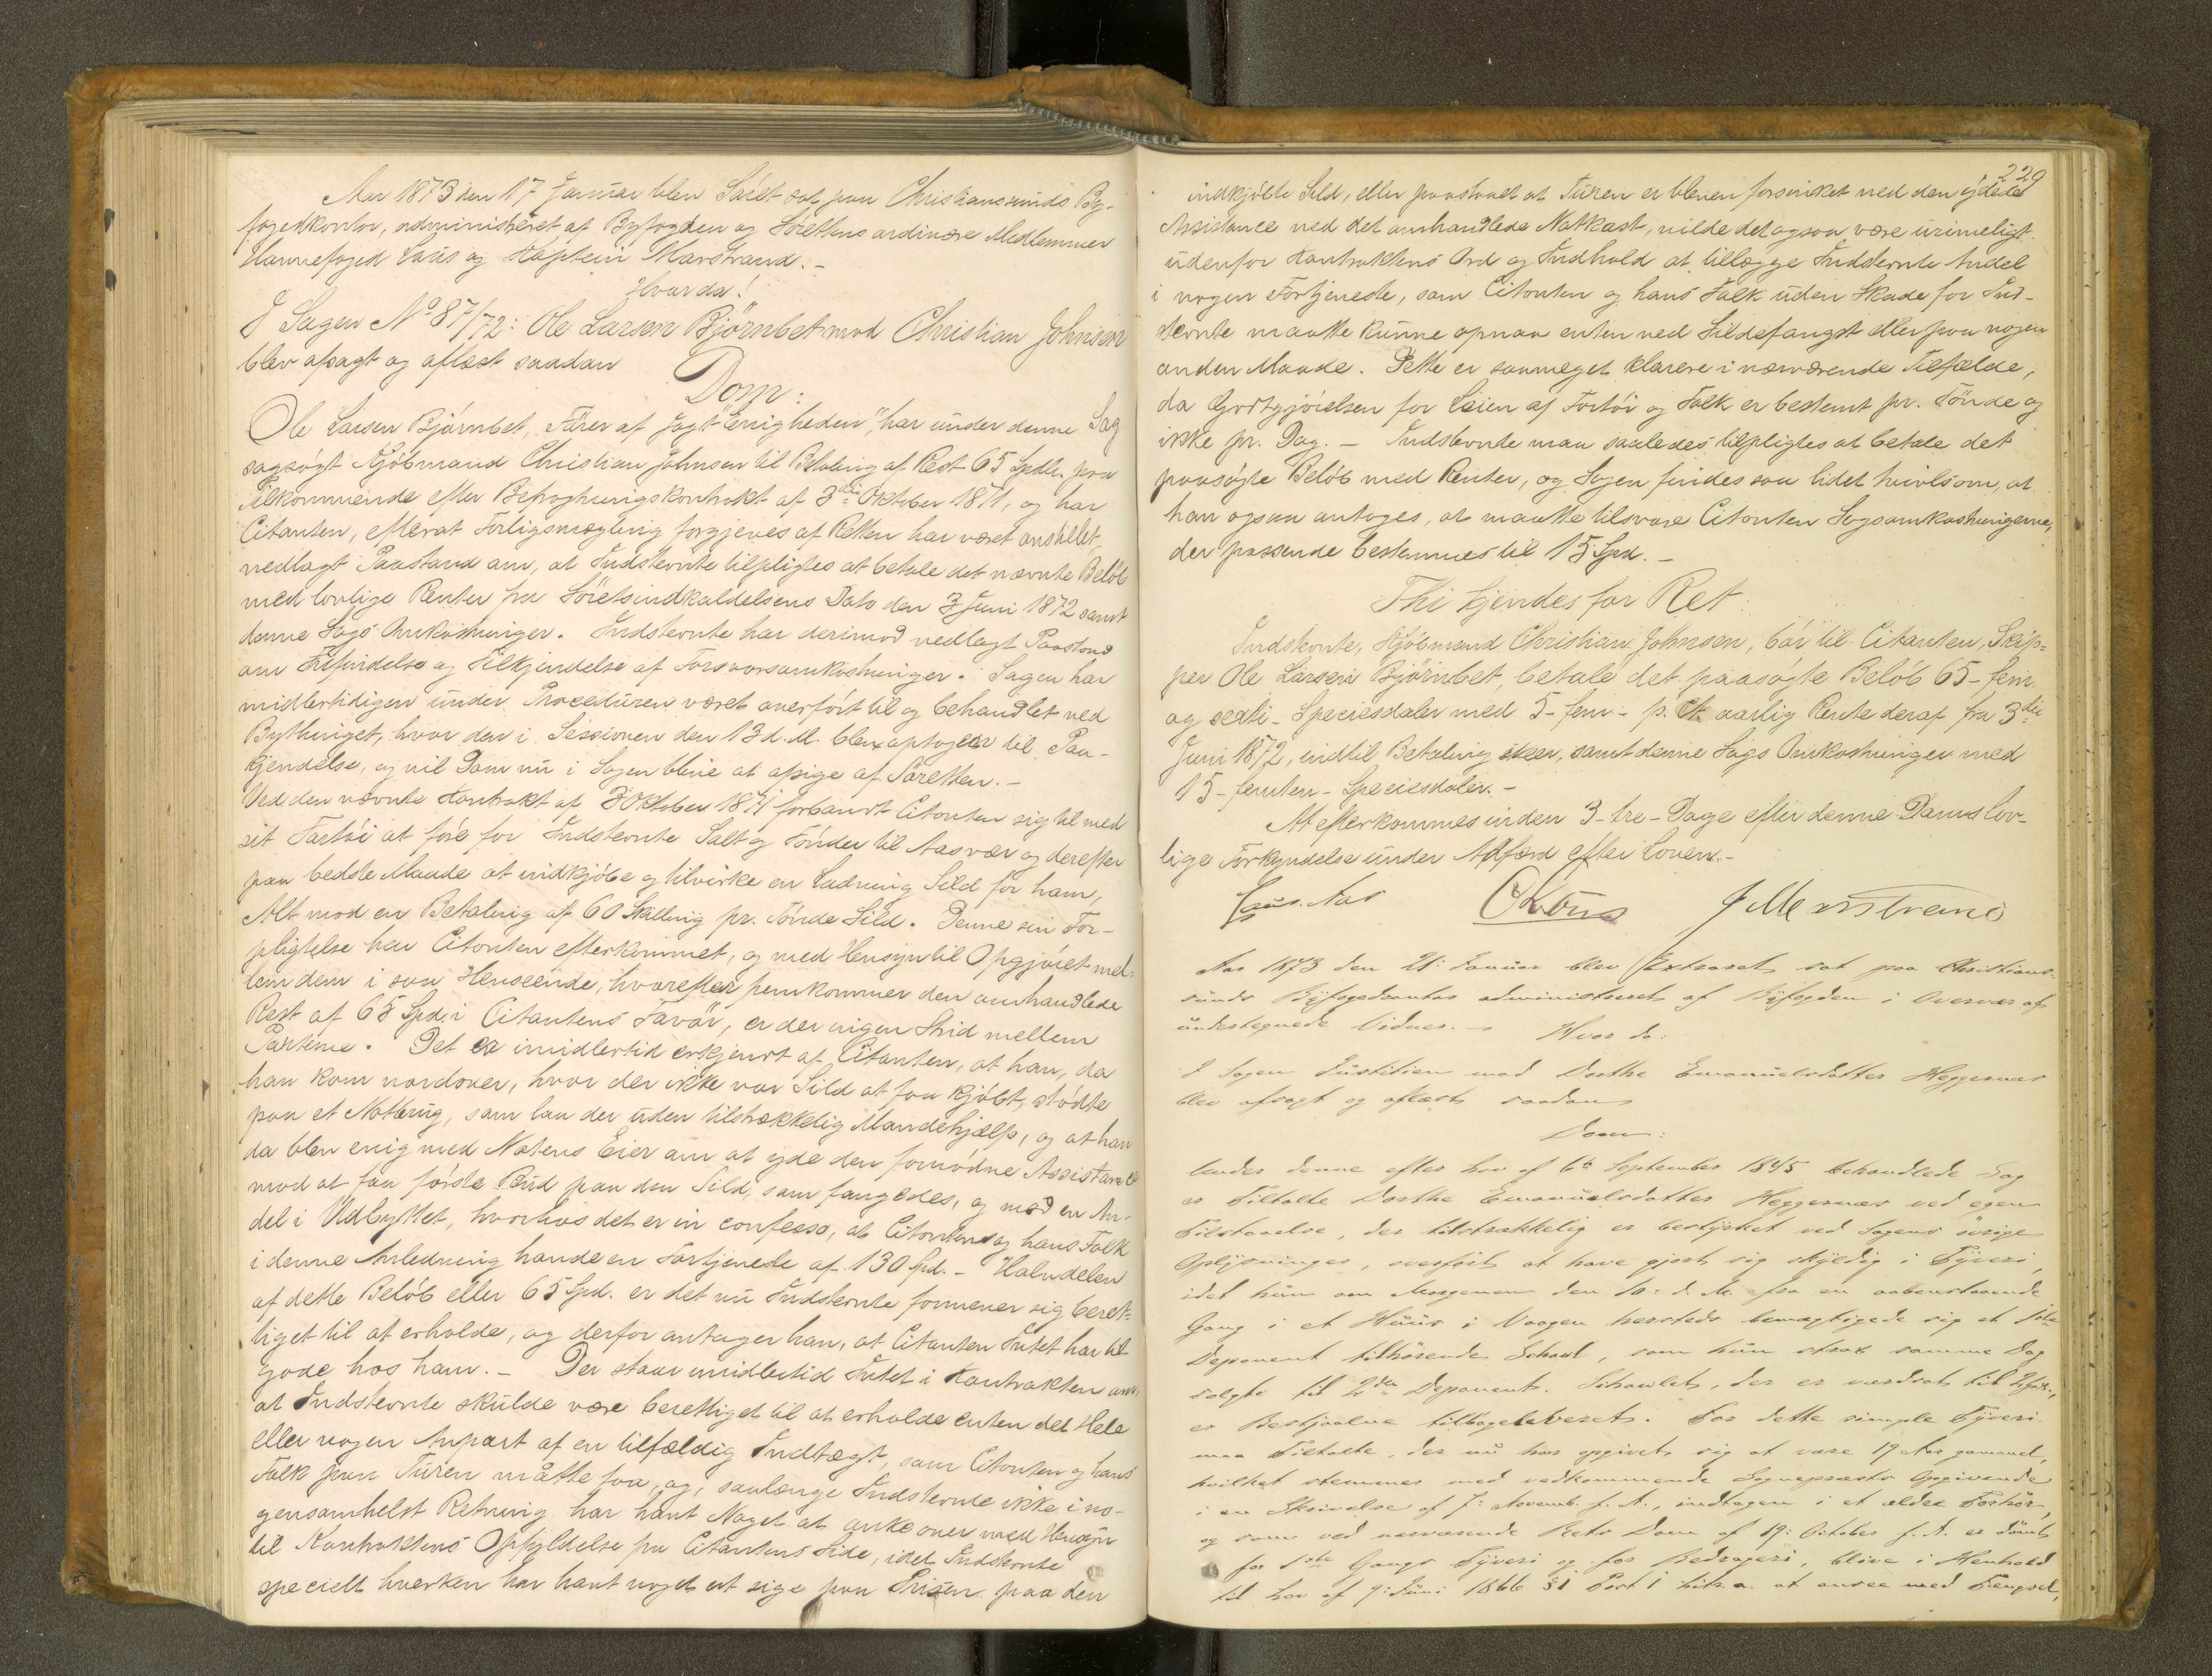 Aar 1873 den 17 Januar blev Søret sat paa Christianssunds By-
fogedkontor, administreret af Byfogden og Sørettens ordinære Medlemmer
Havnefoged Louis og Kaptein Marstrand. -
Hvor da!
I Sagen No 87/72: Ole Larsen Bjørnbet mod Christian Johnsen
blev afsagt og aflæst saadan
Dom:
Ole Larsen Bjørnbet, Fører af Jagt "Enigheden", har under denne Sag
sagsøgt Kjøbmand Christian Johnsen til Betaling af Rest 65 Spdlr. paa
Tilkommende efter Befragtningskontrakt af 3die Oktober 1871, og har
Citanten, efterat Forligsmægling forgjeves af Retten har været anstillet,
nedlagt Paastand om, at Indstevnte tilpligtes at betale det nævnte Beløb
med lovlige Renter fra Søretsindkaldelsens Dato den 3 Juni 1872 samt
denne Sags Omkostninger. Indstevnte har derimod nedlagt Paastand
om Frifindelse og Tilkjendelse af Forsvarsomkostninger. Sagen har
midlertidigen under Proceduren været overført til og behandlet ved
Bythinget, hvor den i Sessionen den 13 d. M. blev optagen til Paa-
kjendelse, og vil Dom nu i Sagen blive at afsige af Søretten. -
Ved den nævnte Kontrakt af 3 Oktober 1871 forbandt Citanten sig til med
sit Fartøi at føre for Indstevnte Salt og Tønder til Aasvær og derefter
paa bedste Maade at indkjøbe og tilvirke en Ladning Sild for ham,
Alt mod en Betaling af 60 Skilling pr. Tønde Sild. Denne sin For-
pligtelse har Citanten efterkommet, og med Hensyn til Opgjøret mel-
lem dem i saa Henseende, hvorefter fremkommer den omhandlede
Rest af 65 Spd. i Citantens Favør, er der ingen Strid mellem
Parterne. Det er imidlertid erkjendt af Citanten, at han, da
han kom nordover, hvor der ikke var Sild at faa kjøbt, stødte
paa et Notbrug, som laa der uden tilstrækkelig Mandehjælp, og at han
da blev enig med Notens Eier om at yde den fornødne Assistance
mod at faa første Bud paa den Sild, som fangedes, og mod en An-
del i Udbyttet, hvorhos det er in confesso, at Citanten og hans Folk
i denne Anledning havde en Fortjeneste af 130 Spd. - Halvdelen
af dette Beløb eller 65 Spd. er det nu Indstevnte formener sig beret-
tiget til at erholde, og derfor antager han, at Citanten Intet har til-
gode hos ham. - Der staar imidlertid Intet i Kontrakten om,
at Indstevnte skulde være berettiget til at erholde enten det Hele
eller nogen Anpart af en tilfældig Indtægt, som Citanten og hans
Folk paa Turen måtte faa, og, saalænge Indstevnte ikke i no-
gensomhelst Retning har havt Noget at anke over med Hensyn
til Kontraktens Opfyldelse fra Citantens Side, idet Indstevnte
specielt hverken har havt noget at sige paa Prisen paa den
229
indkjøbte Sild, eller paastaaet at Turen er bleven forsinket ved den ydede
Assistance ved det omhandlede Notkast, vilde det ogsaa være urimeligt
udenfor Kontraktens Ord og Indhold at tillægge Indstevnte Andel
i nogen Fortjeneste, som Citanten og hans Folk uden Skade for Ind-
stevnte maatte kunne opnaa enten ved Sildefangst eller paa nogen
anden Maade. Dette er saameget klarere i nærværende Tilfælde,
da Godtgjørelsen for Leien af Fartøi og Folk er bestemt pr. Tønde og
ikke pr. Dag. - Indstevnte maa saaledes tilpligtes at betale det
paasøgte Beløb med Renter, og Sagen findes saa lidet tvivlsom, at
han ogsaa antages, at maatte tilsvare Citanten Sagsomkostningerne,
der passende bestemmes til 15 Spd. -
Thi kjendes for Ret:
Indstevnte, Kjøbmand Christian Johnsen, bør til Citanten, Skip-
per Ole Larsen Bjørnbet, betale det paasøgte Beløb 65 - fem
og sexti - Speciesdaler med 5 - fem - p. Ct. aarlig Rente deraf fra 3die
Juni 1872, indtil Betaling skeer, samt denne Sags Omkostninger med
15 - femten - Speciesdaler. -
At efterkommes inden 3 - tre - Dage efter denne Doms lov-
lige Forkyndelse under Adfærd efter Loven. -
Aas Louis J Marstrand
Aar 1873 den 21: Januar blev Extraret sat paa Christian-
sunds Byfogedcontor administreret af Byfogden i Overvær af
undertegnede Vidner. - Hvor da:
I Sagen Justitien mod Dorthe Emanuelsdatter Heggernæs
blev afsagt og aflæst saadan
Dom:
Under denne efter Lov af 6te September 1845 behandlede Sag
er Tiltalte Dorthe Emanuelsdatter Heggernæs ved egen
Tilstaaelse, der tilstrækkelig er bestyrket ved Sagens øvrige
Oplysninger, overført at have gjort sig skyldig i Tyveri,
idet hun om Morgenen den 10: d. M. fra en aabenstaaende
Gang i et Huus i Vaagen hersteds bemægtigede sig et 1ste
Deponent tilhørende Schavl, som hun strax samme Dag
solgte til 2den Deponent. Schavlet, der er værdsat til
er Bestjaalne tilbageleveret. For dette simple Tyveri
maa Tiltalte, der nu har opgivet sig at være 19 Aar gammel,
hvilket stemmer med vedkommende Sognepræsts Opgivende
i en Skrivelse af 7: Novemb. f. A., indtagen i et ældre Forhør,
og som ved nærværende Rets Dom af 19: October f. A. er dømt
for 1ste Gangs Tyveri og for Bedrageri, blive i Henhold
til Lov af 9: Juni 1866 § 1 Post 1 Litr. a. at ansee med Fængsel,